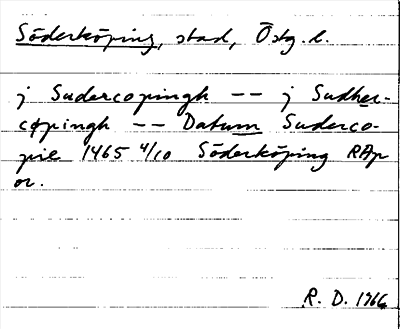 Söderköping, stad, Östg. l.
j Sudercopingh -- j Sudher-
cøpingh -- Datum Suderco-
pie 1465 4/10 Söderköping RAp
or.
R. D. 1966